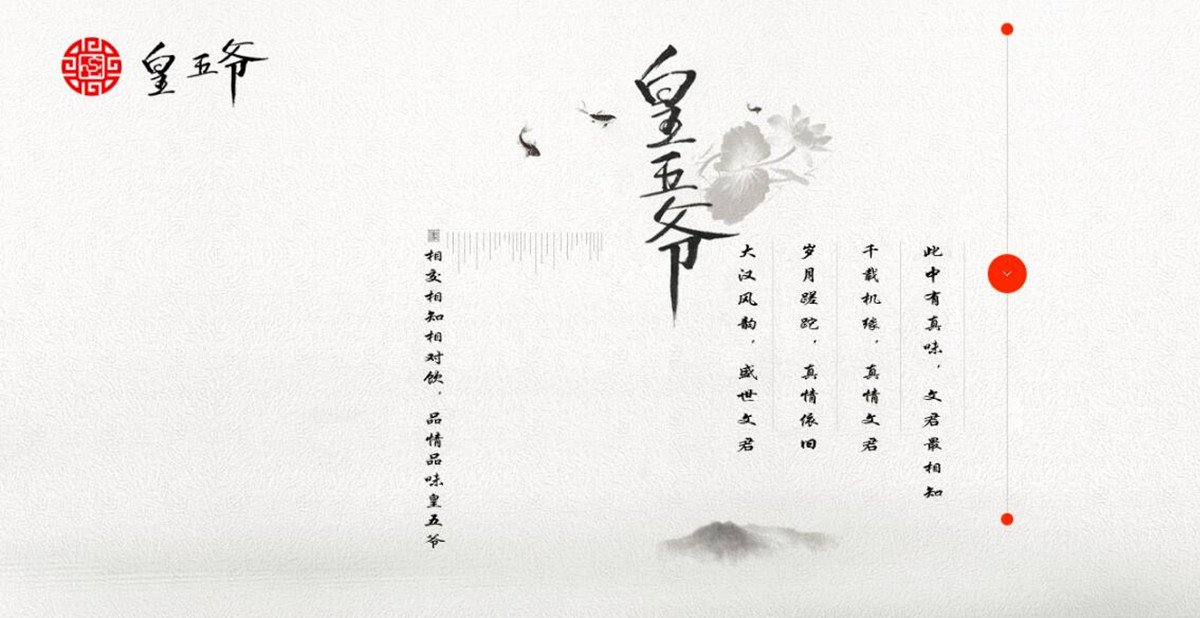 皇五爷
皇五爷
此中有真味，文君最相知
千载机缘，真情文君
岁月蹉跎，真情依旧
大汉风韵，盛世文君
相交相知相对饮，品情品味皇五爷